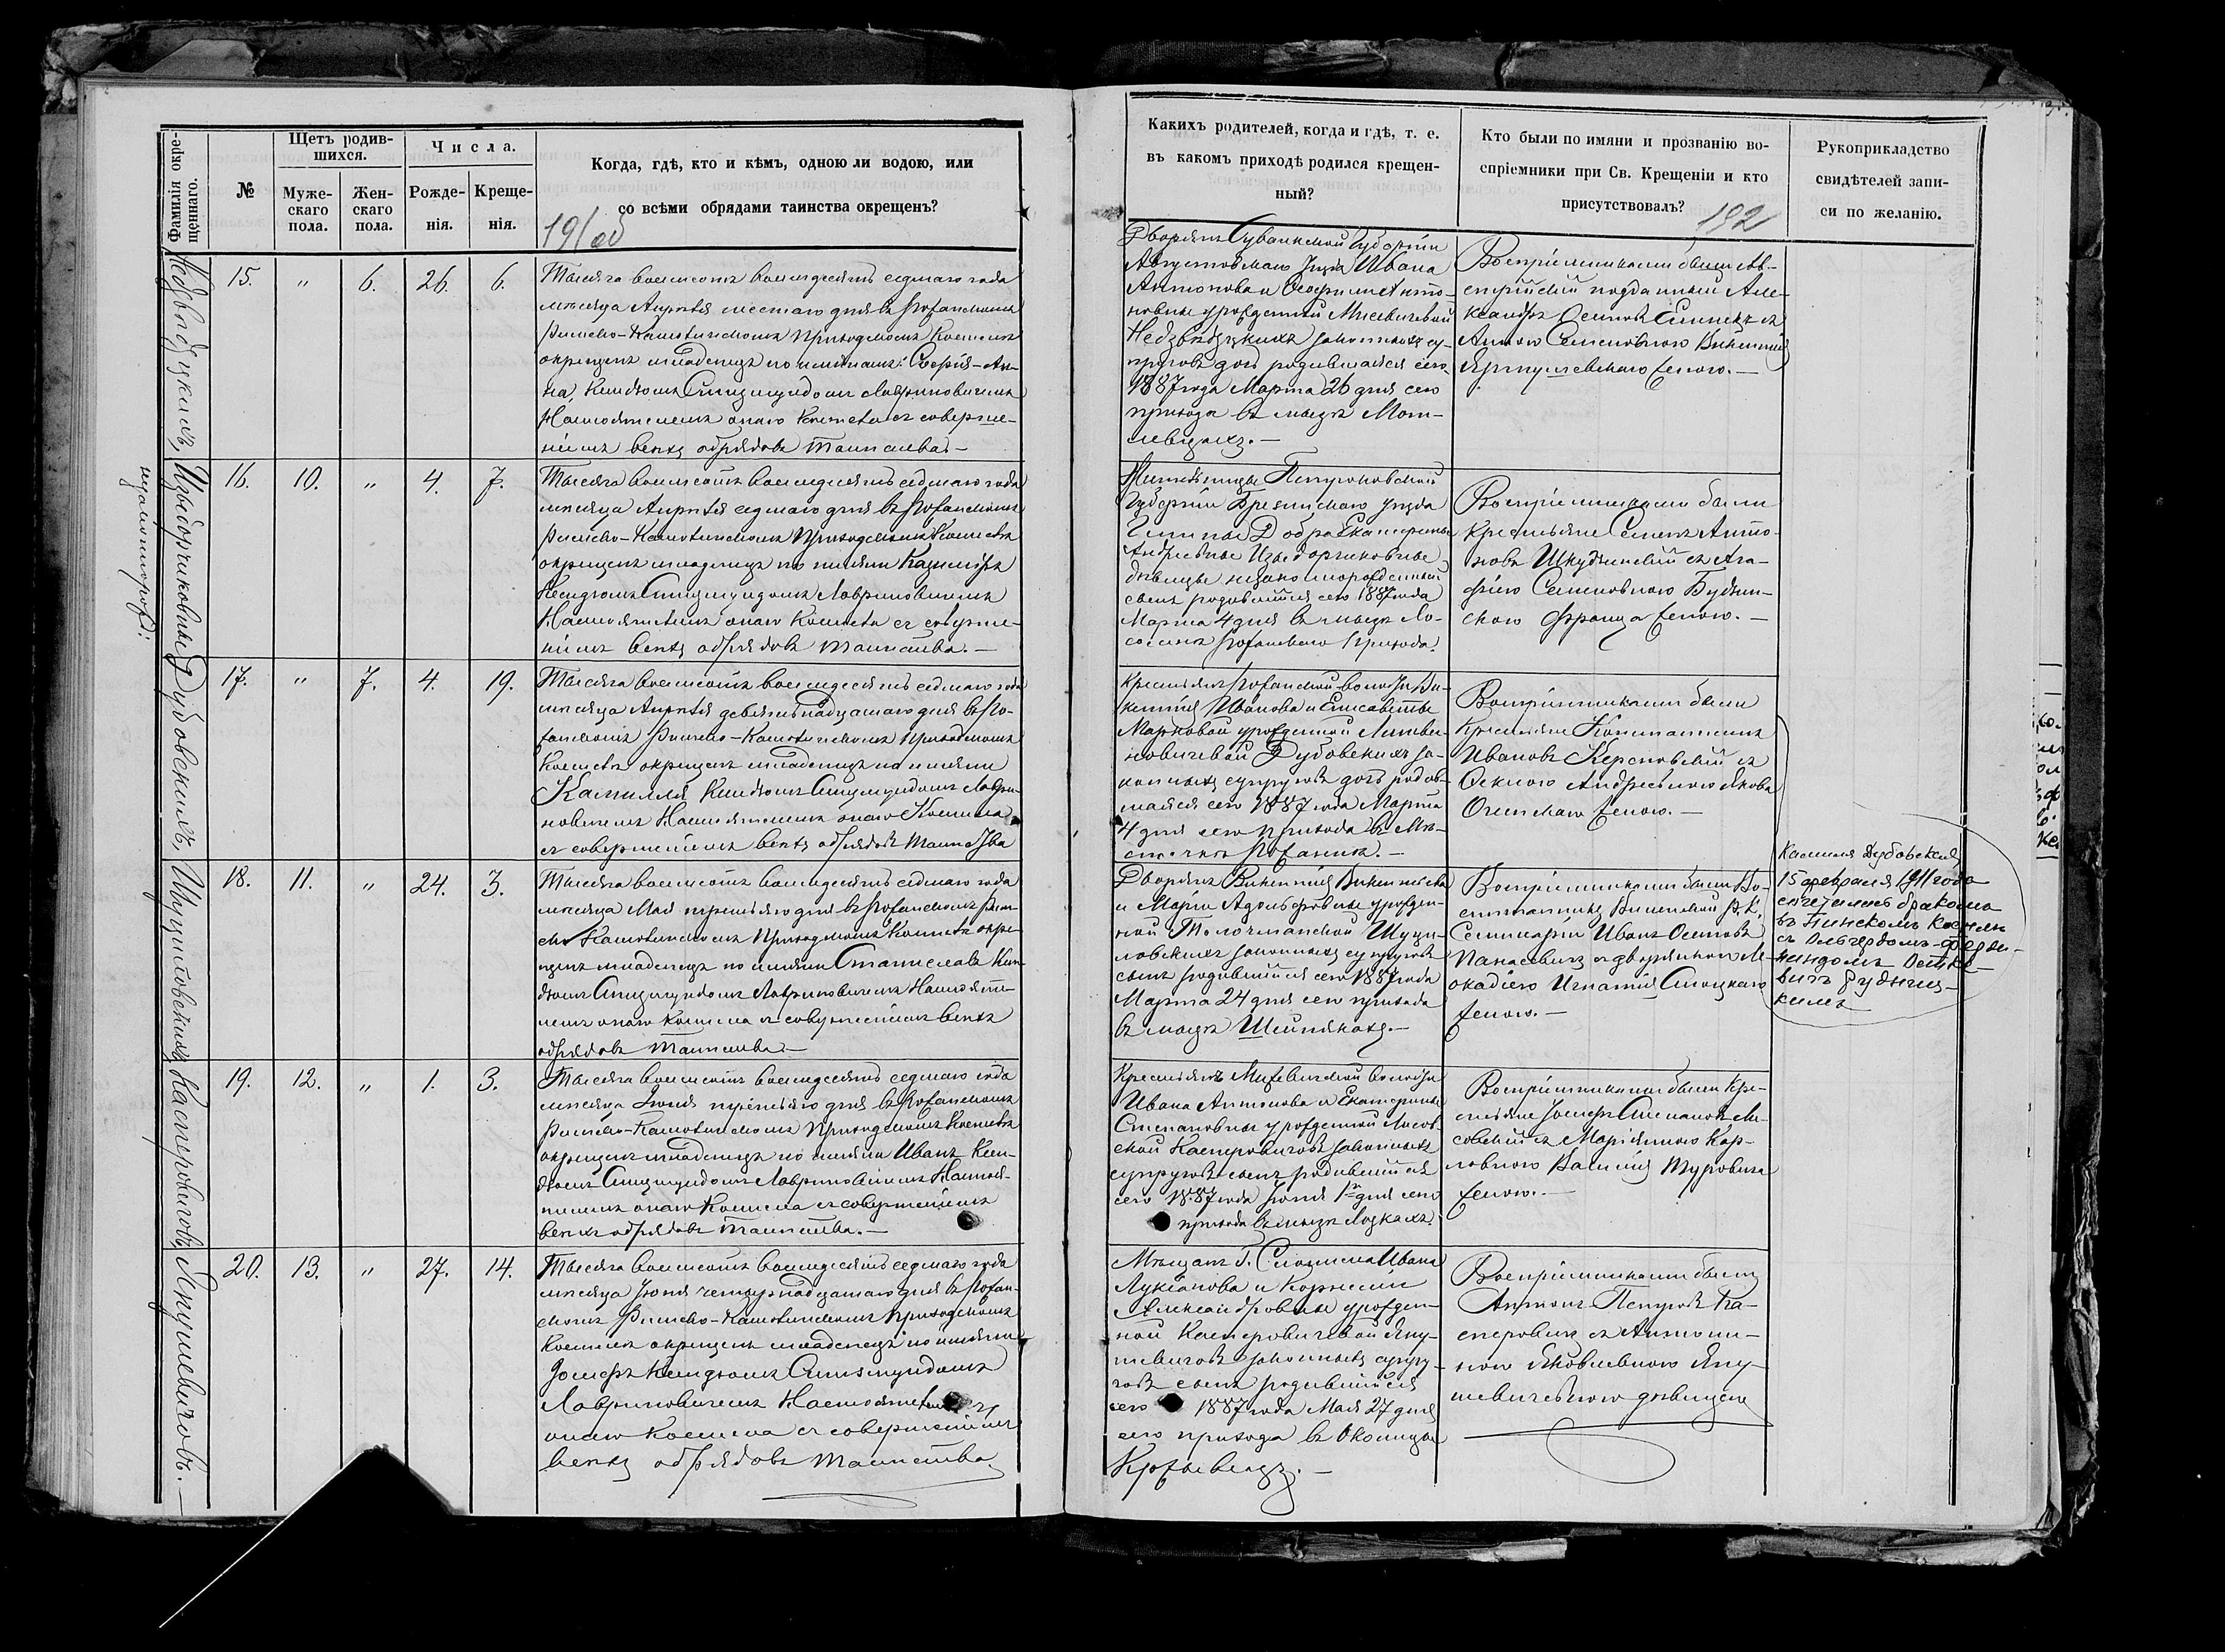 Фамилія окре-
щеннаго.
№
Щетъ родив-
шихся.
Муже-
скаго
пола.
Жен-
скаго
пола.
Числа.
Рожде-
нія.
Креще-
нія.
Когда, гдѣ, кто и кѣмъ, одною ли водою, или
со всѣми обрядами таинства окрещенъ?
191об
Недзвѣдзкихъ,
15. " 6. 26. 6.
Тысяча восемсотъ восемдесятъ седмаго года
мѣсяца Апрѣля шестаго дня въ Рожанскомъ
Римско-Католическомъ Приходскомъ Костелѣ
окрещенъ младенецъ по именамъ: Софія-Ан-
на, Ксендзомъ Сигизмундомъ Лавриновичемъ
Настоятелемъ онаго Костела съ соверше-
ніемъ всѣхъ обрядовъ таинства.—
Изыдорчиковны
незаконнорожд:
16. 10. " 4. 7.
Тысяча восемсотъ восемдесятъ седмаго года
мѣсяца Апрѣля седмаго дня въ Рожанскомъ
Римско-Католическомъ Приходскомъ Костелѣ
окрещенъ младенецъ по имени Казимиръ
Ксендзомъ Сигизмундомъ Лавриновичемъ
Настоятелемъ онаго Костела съ соверше-
ніемъ всѣхъ обрядовъ таинства.—
Дубовскихъ,
17. " 7. 4. 19.
Тысяча восемсотъ восемдесятъ седмаго года
мѣсяца Апрѣля девятнадцатаго дня въ Ро-
жанскомъ Римско-Католическомъ Приходскомъ
Костелѣ окрещенъ младенецъ по имени
Камилля Ксендзомъ Сигизмундомъ Лаври-
новичемъ Настоятелемъ онаго Костела
съ совершеніемъ всѣхъ обрядовъ Таинства
Шуцилловскихъ
18. 11. " 24. 3.
Тысяча восемсотъ восемдесятъ седмаго года
мѣсяца Мая третьяго дня въ Рожанскомъ Рим-
ско Католическомъ Приходскомъ Костелѣ окре-
щенъ младенецъ по имени Станиславъ Ксен-
дзомъ Сигизмундомъ Лавриновичемъ Настояте-
лемъ онаго Костела съ совершеніемъ всѣхъ
обрядовъ Таинства.—
Касперовичовъ,
19. 12. " 1. 3.
Тысяча восемсотъ восемдесятъ седмаго года
мѣсяца Іюня третьяго дня въ Рожанскомъ
Римско-Католическомъ Приходскомъ Костелѣ
окрещенъ младенецъ по имени Иванъ Ксен-
дзомъ Сигизмундомъ Лавриновичемъ Настоя-
телемъ онаго Костела съ совершеніемъ
всѣхъ обрядовъ таинства.—
Янушевичовъ.—
20. 13. " 27. 14.
Тысяча восемсотъ восемдесятъ седмаго года
мѣсяца Іюня четырнадцатаго дня въ Рожан-
скомъ Римско-Католическомъ Приходскомъ
Костелѣ окрещенъ младенецъ по имени
Іосифъ Ксендзомъ Сигизмундомъ
Лавриновичемъ Настоятелемъ
онаго Костела съ совершеніемъ
всѣхъ обрядовъ таинства
Какихъ родителей, когда и гдѣ, т. е.
въ какомъ приходѣ родился крещен-
ный?
Кто были по имяни и прозванію во-
спріемники при Св. Крещеніи и кто
присутствовалъ?
192
Рукоприкладство
свидѣтелей запи-
си по желанію.
Дворянъ Сувалкской Губерніи
Августовскаго Уѣзда Ивана
Антонова и Осафиміи Анто-
новны урожденной Мисевичевой
Недзвѣдзкихъ законныхъ су-
пруговъ дочь родившаяся сего
1887 года Марта 26 дня сего
прихода въ мызѣ Мот-
Воспріемниками были Ав-
стрійскій подданный Але-
ксандръ Осиповъ съ
Анною Семеновною Викентія
женою.—
Житницы Петроковской
Губерніи Брезинскаго Уѣзда
Гмины Добра Екатерины
Андреевны Изыдорчиковны
дѣвицы незаконнорожденный
сынъ родившійся сего 1887 года
Марта 4 дня въ мызѣ Ло-
Рожанскаго Прихода.
Воспріемниками были
крестьяне Семенъ Анто-
новъ Шкудзинскій съ Ага-
фіею Семеновною Будзин-
скаго Франца женою.—
Крестьянъ Рожанской волости Ви-
кентія Иванова и Елисаветы
Марковой урожденной Литви-
новичевой Дубовскихъ за-
конныхъ супруговъ дочь родив-
шаяся сего 1887 года Марта
4 дня сего прихода въ Мѣ-
стечкѣ Рожанкѣ.—
Воспріемниками были
Крестьяне Константинъ
Ивановъ Керсновскій съ
Андреевною Якова
женою.—
Дворянъ Викентія Викентіева
и Маріи Адольфовны урожден-
ной Толочманской Шуци-
ловскихъ законныхъ супруговъ
сынъ родившійся сего 1887 года
Марта 24 дня сего прихода
въ мызѣ
Воспріемниками были Во-
спитанникъ Виленской Р. К.
Семинаріи Иванъ Осиповъ
Панасевичъ съ дворянкою Ле-
окадіею Игнатія Слоцкаго
женою.—
Камиля Дубовская
15 февраля 1911 года
сочеталась бракомъ
въ Пинскомъ Костелѣ
съ Ольгердомъ-Ферди-
нандомъ
Крестьянъ Мижевичской волости
Ивана Антонова и Екатерины
Степановны урожденной Лисов-
ской Касперовичовъ законныхъ
супруговъ сынъ родившійся
сего 1887 года Іюня 1го дня сего
прихода въ мызѣ Лозкахъ.
Воспріемниками были Кре-
стьяне Іосифъ Степановъ Ли-
совскій съ Маріянною Кар-
ловною Василія Туровича
женою.—
Мѣщанъ Г. Слонима Ивана
Лукіанова и Корнеліи
Александровны урожден-
ной Касперовичевой Яну-
шевичовъ законныхъ супру-
говъ сынъ родившійся
сего 1887 года Мая 27 дня
сего прихода въ Околицы
Воспріемниками были
Антонъ Петровъ Ка-
сперовичъ съ Антони-
ною Яковлевною Яну-
шевичевною дѣвицею